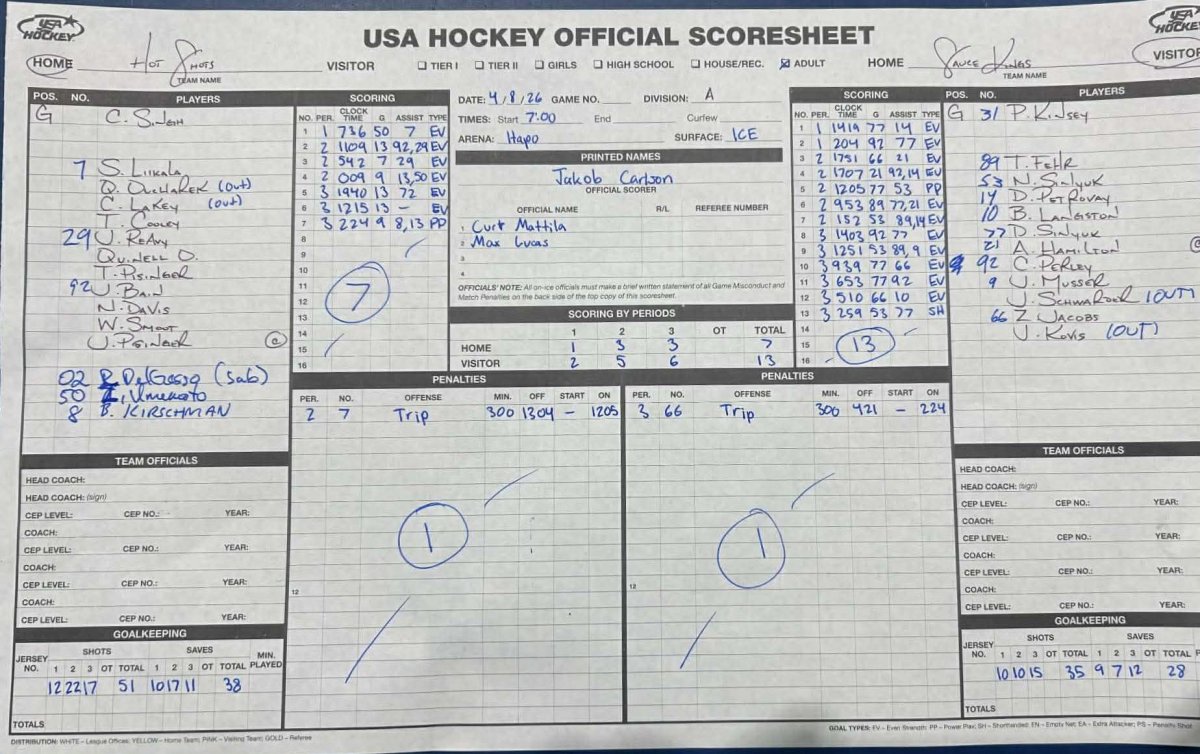 USA HOCKEY
USA HOCKEY OFFICIAL SCORESHEET
USA HOCKEY
HOME Hot Shots VISITOR
TEAM NAME
☐ TIER I ☐ TIER II ☐ GIRLS ☐ HIGH SCHOOL ☐ HOUSE/REC. ☒ ADULT
HOME Sauce Kings VISITOR
TEAM NAME
POS. NO. PLAYERS
G C. Singh
7 S. Liikala
(out)
C. Lakey (out)
T. Cooley
29 J. Reavy
Quinell O.
T. Pisinger
92 J. Bain
N. Davis
W. Smoot
J. Psinger C
02 R. DelGossa (Sub)
50 Z. Umemoto
8 B. Kirschman
SCORING
NO. PER. CLOCK TIME G ASSIST TYPE
1 1 736 50 7 EV
2 2 1109 13 92,29 EV
3 2 542 7 29 EV
4 2 009 9 13,50 EV
5 3 1940 13 72 EV
6 3 1215 13 – EV
7 3 224 9 8,13 PP
8
9
10
11
12
13
14
15
16
7
DATE: 4/8/26 GAME NO. DIVISION: A
TIMES: Start 7:00 End Curfew
ARENA: Hapo SURFACE: ICE
PRINTED NAMES
Jakob Carlson
OFFICIAL SCORER
OFFICIAL NAME R/L REFEREE NUMBER
1 Curt Mattila
2 Max Lucas
3
4
OFFICIALS' NOTE: All on-ice officials must make a brief written statement of all Game Misconduct and
Match Penalties on the back side of the top copy of this scoresheet.
SCORING BY PERIODS
1 2 3 OT TOTAL
HOME 1 3 3 7
VISITOR 2 5 6 13
SCORING
NO. PER. CLOCK TIME G ASSIST TYPE
1 1 1419 77 14 EV
2 1 204 92 77 EV
3 2 1751 66 21 EV
4 2 1707 21 92,14 EV
5 2 1205 77 53 PP
6 2 953 89 77,21 EV
7 2 152 53 89,14 EV
8 3 1403 92 77 EV
9 3 1251 53 89,9 EV
10 3 939 77 66 EV
11 3 653 77 92 EV
12 3 510 66 10 EV
13 3 259 53 77 SH
14
15
16
13
POS. NO. PLAYERS
G 31 P. Kinsey
89 T. Fehr
53 N. Sinyuk
14 D. Petrovay
10 B. Langston
77 D. Sinyuk
21 A. Hamilton
92 C. Perley
9 J. Musser
J. (OUT)
66 Z Jacobs
J. Kovis (OUT)
PENALTIES
PER. NO. OFFENSE MIN. OFF START ON
2 7 Trip 300 1304 – 1205
1
12
PENALTIES
PER. NO. OFFENSE MIN. OFF START ON
3 66 Trip 300 421 – 224
1
12
TEAM OFFICIALS
HEAD COACH:
HEAD COACH: (sign)
CEP LEVEL: CEP NO.: YEAR:
COACH:
CEP LEVEL: CEP NO.: YEAR:
COACH:
CEP LEVEL: CEP NO.: YEAR:
COACH:
CEP LEVEL: CEP NO.: YEAR:
GOALKEEPING
JERSEY NO. SHOTS SAVES MIN. PLAYED
1 2 3 OT TOTAL 1 2 3 OT TOTAL
12 22 17 51 10 17 11 38
TOTALS
TEAM OFFICIALS
HEAD COACH:
HEAD COACH: (sign)
CEP LEVEL: CEP NO.: YEAR:
COACH:
CEP LEVEL: CEP NO.: YEAR:
COACH:
CEP LEVEL: CEP NO.: YEAR:
COACH:
CEP LEVEL: CEP NO.: YEAR:
GOALKEEPING
JERSEY NO. SHOTS SAVES
1 2 3 OT TOTAL 1 2 3 OT TOTAL
10 10 15 35 9 7 12 28
TOTALS
DISTRIBUTION: WHITE – League Offices; YELLOW – Home Team; PINK – Visiting Team; GOLD – Referee
GOAL TYPES: EV – Even Strength; PP – Power Play; SH – Shorthanded; EN – Empty Net; EA – Extra Attacker; PS – Penalty Shot